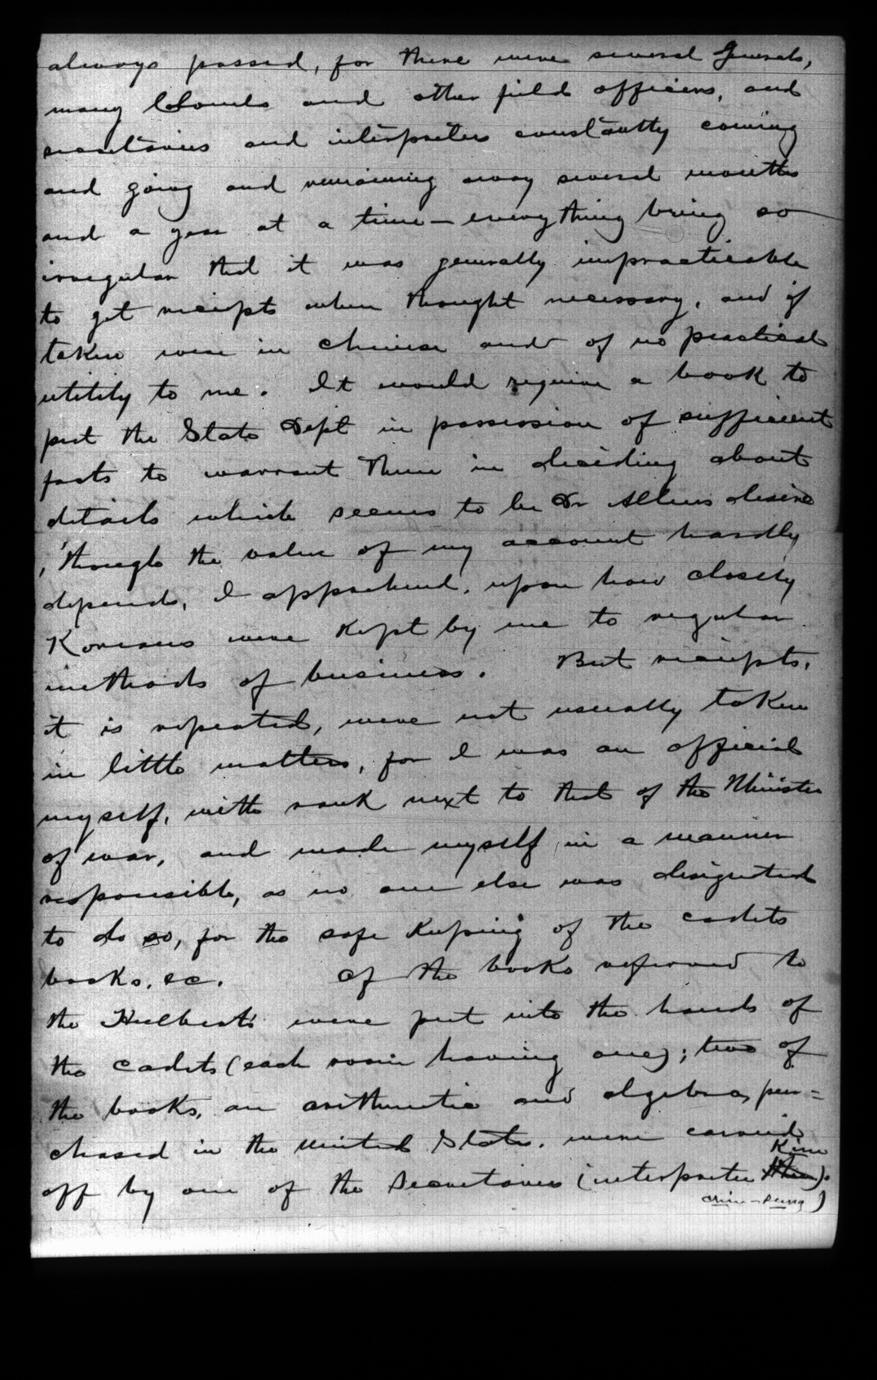 always passed, for there were several Generals,
many Colonels and other field officers, and
secretaries and interpreters constantly coming
and going and remaining away several months
and a year at a time — everything being so
irregular that it was generally impracticable
to get receipts when thought necessary, and if
taken were in chinese and of no practical
utility to me. It would require a book to
put the State Dept in possession of sufficient
facts to warrant them in deciding about
details which seems to be Dr Allens desire
, though the value of my account hardly
depends, I apprehend, upon how closely
Koreans were kept by me to regular
methods of business. But receipts,
it is repeated, were not usually taken
in little matters, for I was an official
myself, with rank next to that of the Minister
of war, and made myself, in a manner
responsible, as no one else was designated
to do so, for the safe keeping of the cadets
books, &c. Of the books referred to
the Hulberts were put into the hands of
the cadets (each room having one); two of
the books, an arithmetic and algebra, pur=
chased in the United States, were carried
off by one of the Secretaries (interpreter Kim